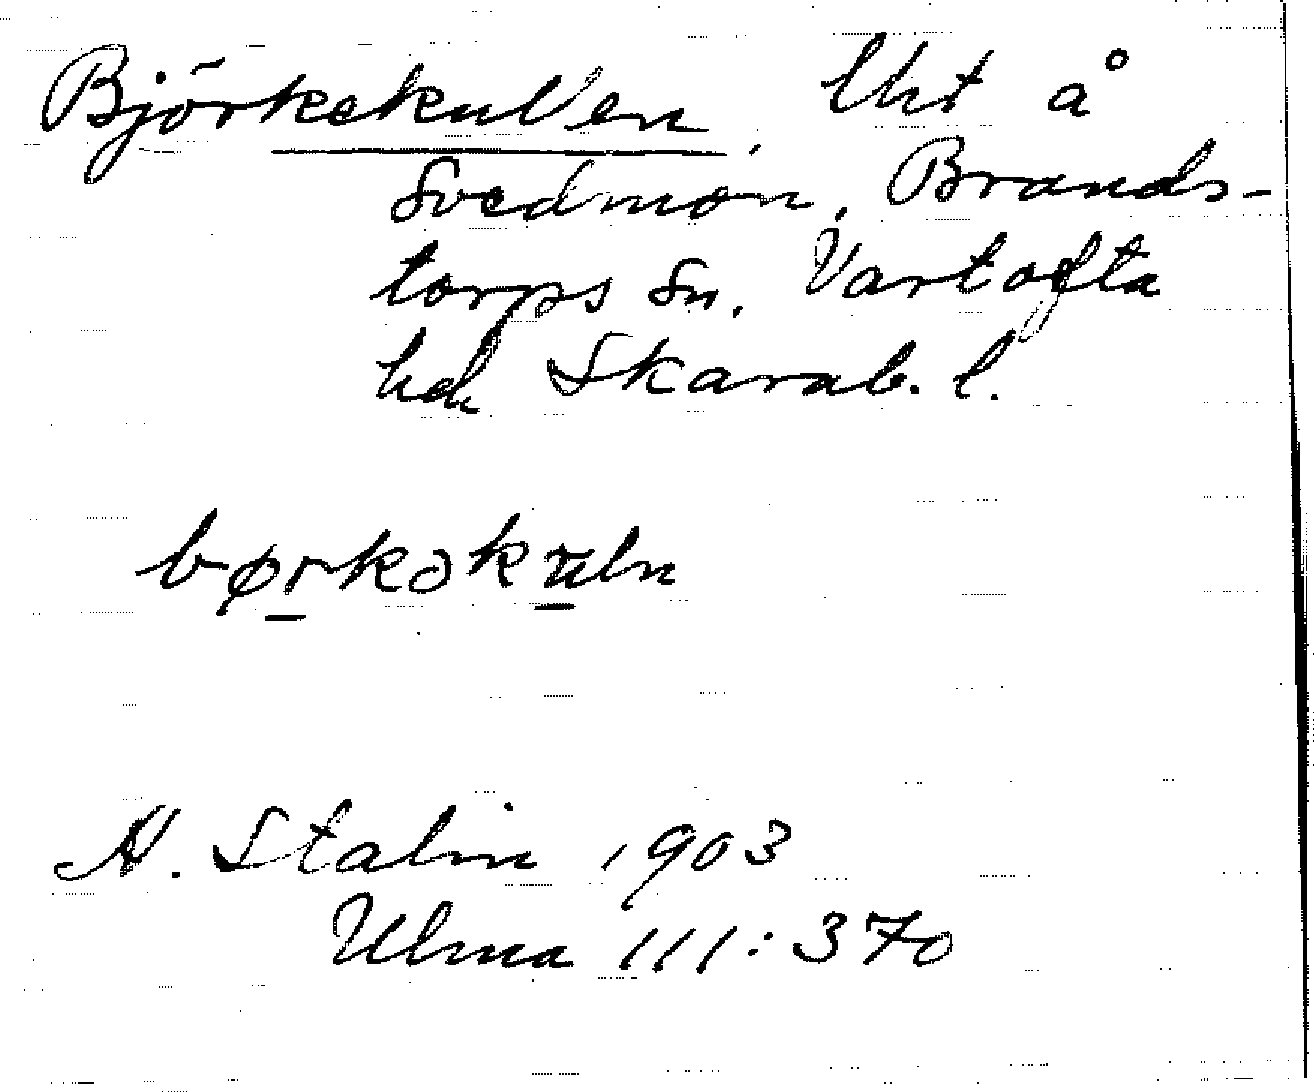 Björkekullen, lht å
Svedmon, Brands-
torps sn. Vartofta
hd Skarab. l.
børkəkuln
A. Stalin 1903
Ulma 111:370